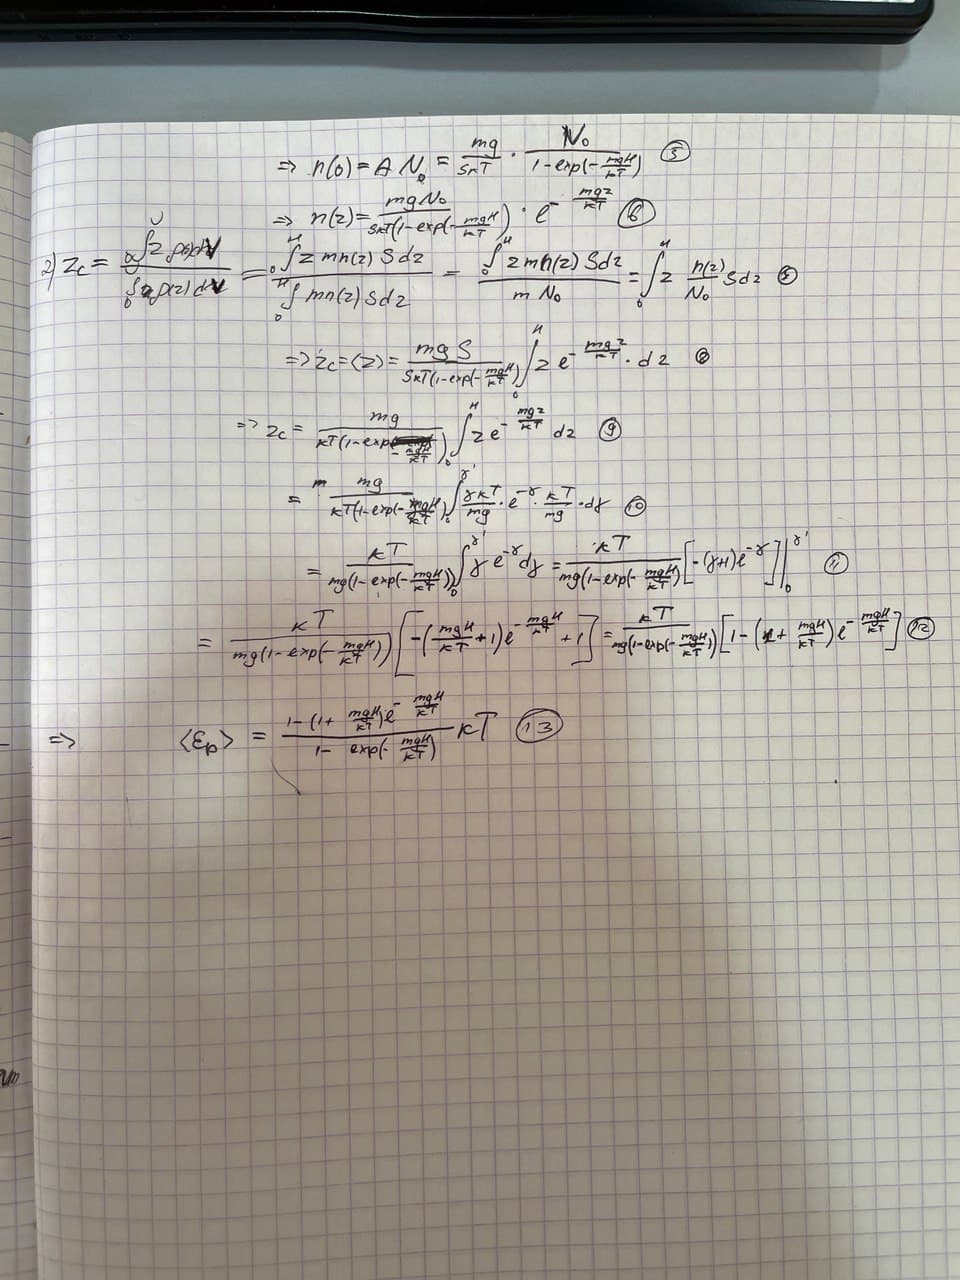 => n(0) = A N₀ = mg/SkT · N₀/(1-exp(-mgH/kT)) (5)
=> n(z) = mgN₀/(SkT(1-exp(-mgH/kT))) · e^(-mgz/kT) (6)
2) z_c = = ∫₀ᴴ z mn(z) Sdz / ∫₀ᴴ mn(z) Sdz = ∫₀ᴴ z mn(z) Sdz / (m N₀) = ∫₀ᴴ z n(z)/N₀ Sdz
=> z_c = <z> = mgS/(SkT(1-exp(-mgH/kT))) ∫₀ᴴ z e^(-mgz/kT) · dz
=> z_c = mg/(kT(1-exp(-mgH/kT))) ∫₀ᴴ z e^(-mgz/kT) dz (9)
= mg/(kT(1-exp(-mgH/kT))) ∫₀^γ' γkT/mg · e^(-γ) · kT/mg · dγ (10)
= kT/(mg(1-exp(-mgH/kT))) ∫₀^γ' γ e^(-γ) dγ = kT/(mg(1-exp(-mgH/kT))) [-(γ+1)e^(-γ)]|₀^γ' (11)
= kT/(mg(1-exp(-mgH/kT))) [-(mgH/kT + 1)e^(-mgH/kT) + 1] = kT/(mg(1-exp(-mgH/kT))) [1-(1+mgH/kT)e^(-mgH/kT)] (12)
=> <ε_p> = (1-(1+mgH/kT)e^(-mgH/kT))/(1-exp(-mgH/kT)) kT (13)